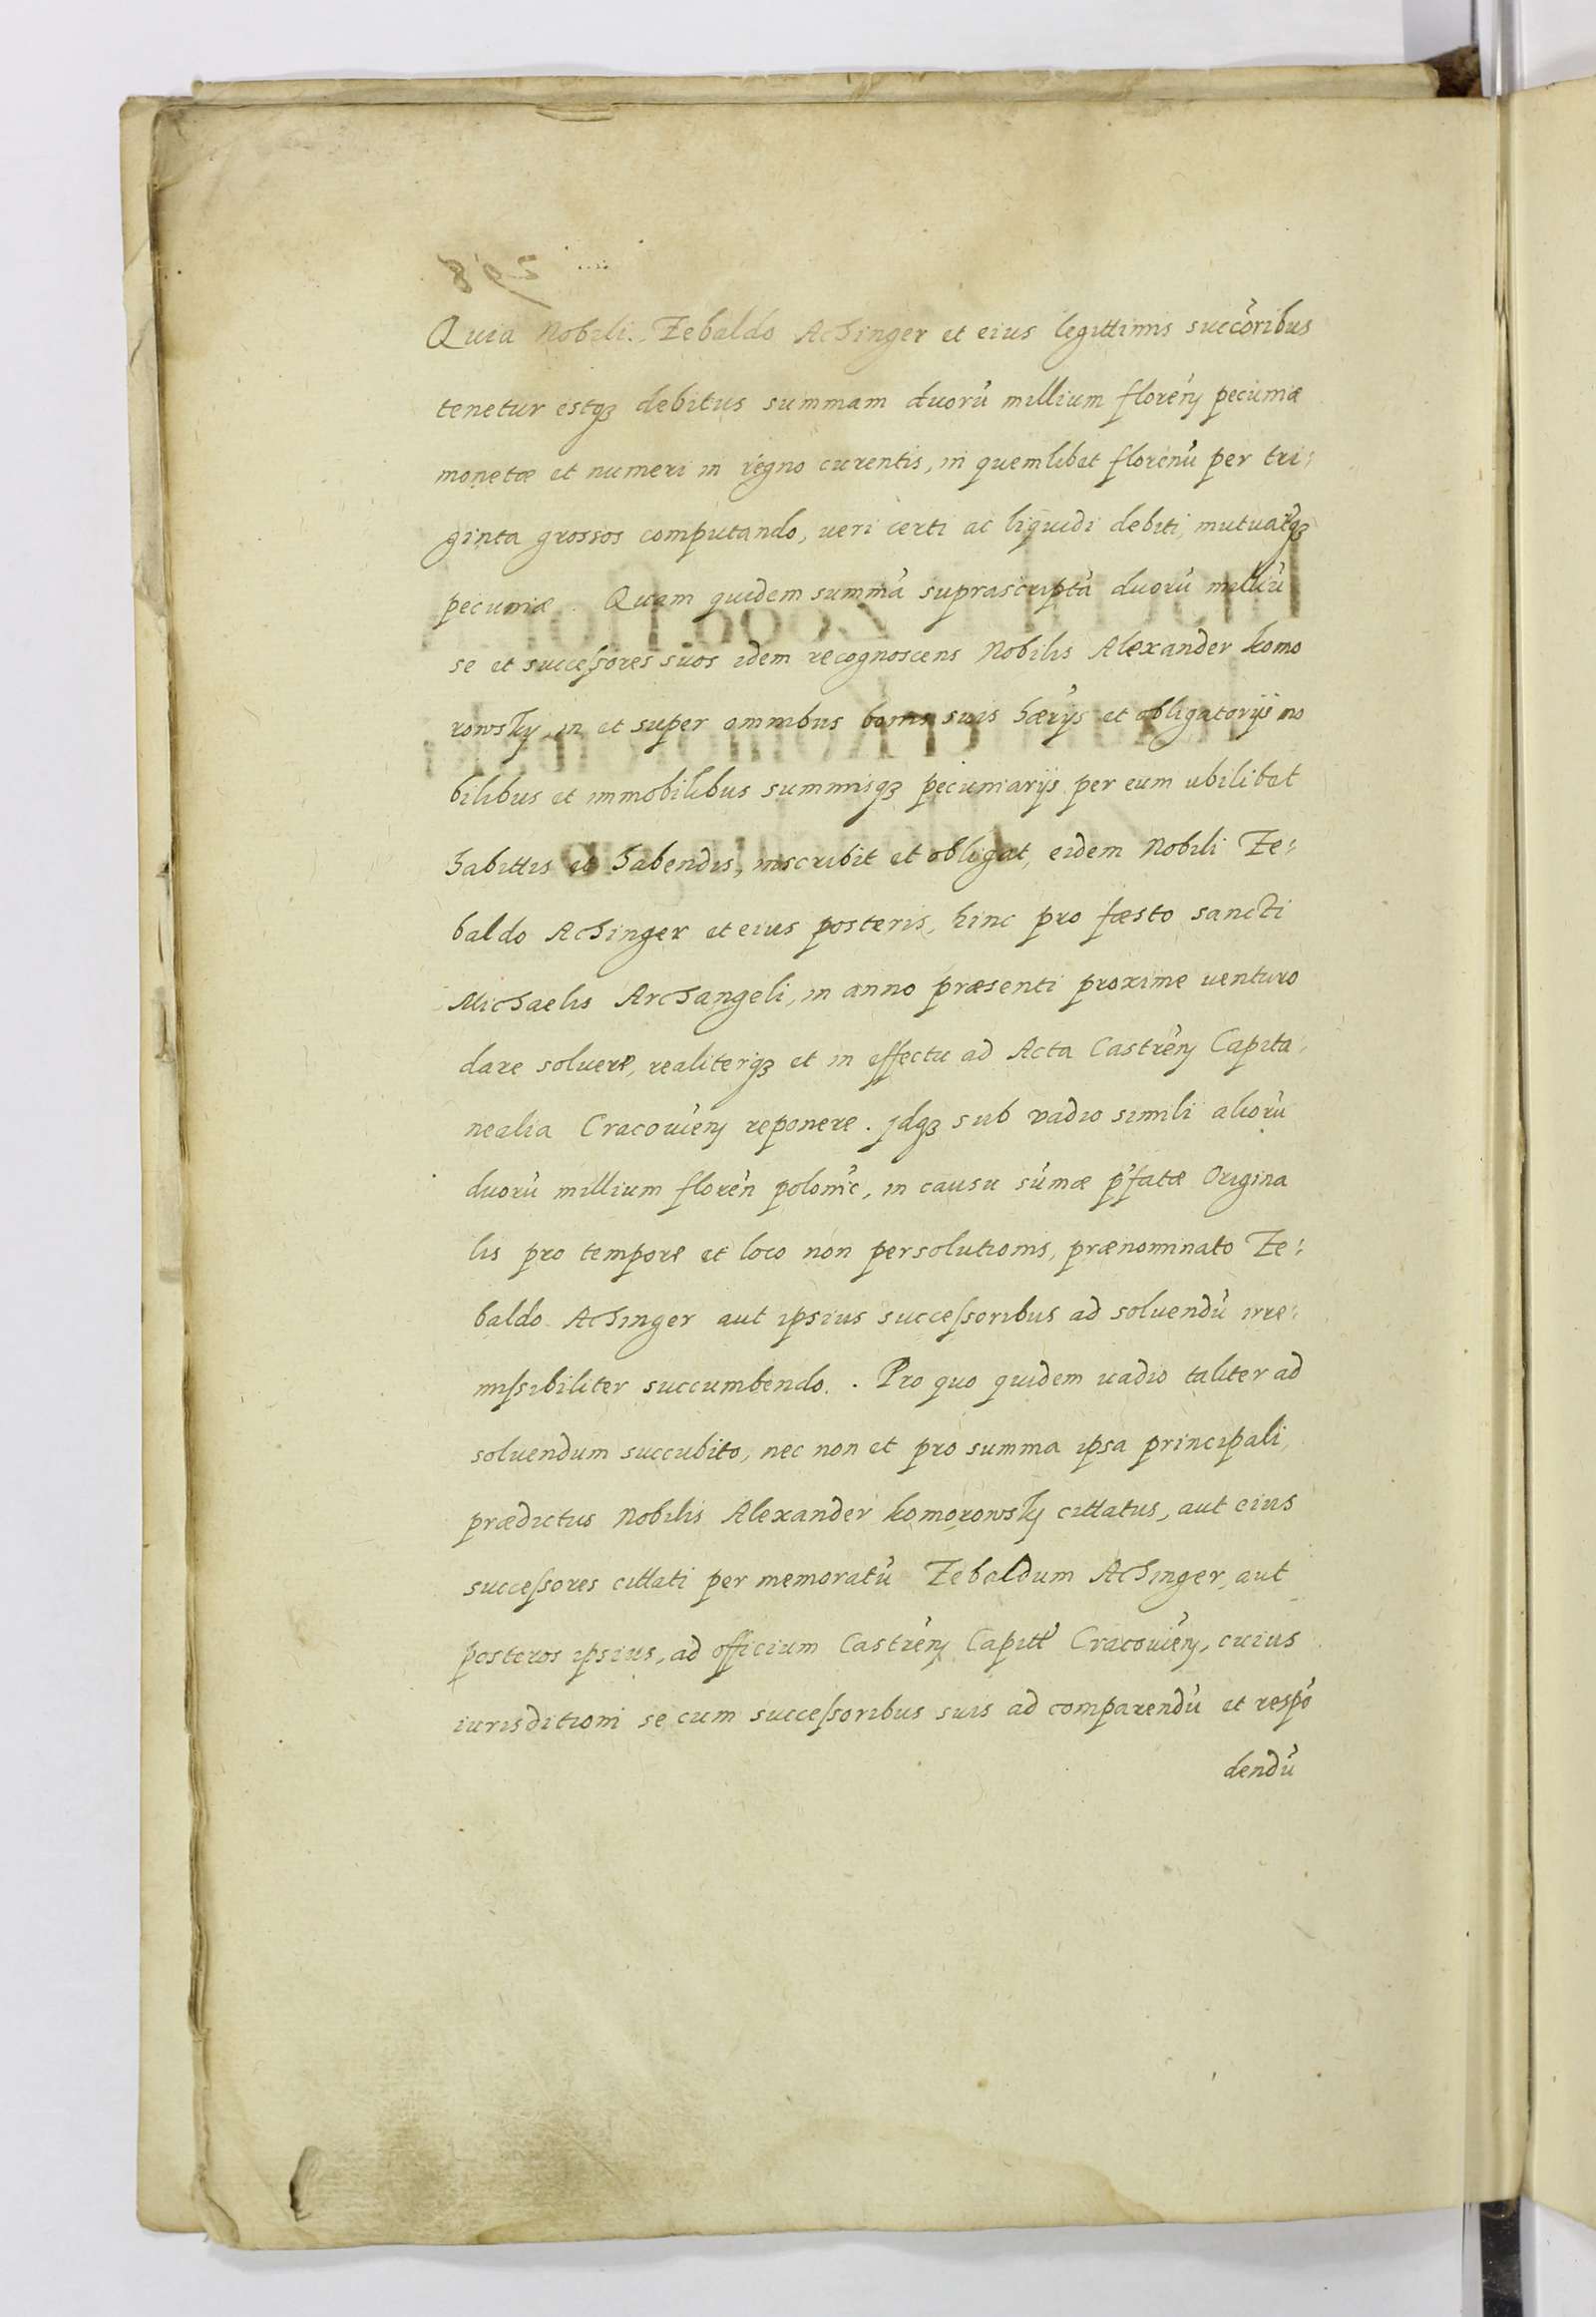 Quia Nobili Zebaldo Achinger et eius legittimis succoribus
tenetur estqz debitus summam duorů millium floreń pecuniæ
monetæ et numeri in regno curentis, in quemlibet florenů per tri:
ginta grossos computando, veri certi ac liquidi debiti, mutuaeqz
pecuniæ. Quam quidem summã suprascriptã duorů milliů
se et successores suos idem recognoscens Nobilis Alexander komo
rowsky, in et super omnibus bonis suis hærijs et obligatorijs mo
bilibus et immobilibus summisqz pecuniarijs per eum ubilibet
habittis et habendis, inscribit et obligat, eidem Nobili Ze:
baldo Achinger et eius posteris, hinc pro fæsto sancti
Michaelis Archangeli, in anno præsenti proxime venturo
dare soluere, realiterqz et in effectu ad Acta Castreń Capita:
nealia Cracouień reponere. jdqz sub vadio simili aliorů
duorů millium floreń polonić, in causu sůmæ p̃fatæ Origina
lis pro tempore et loco non persolutionis, prænominato Ze:
baldo Achinger aut ipsius successoribus ad soluendů irre:
missibiliter succumbendo. Pro quo quidem uadio taliter ad
soluendum succubito, nec non et pro summa ipsa principali,
prædictus Nobilis Alexander komorowsky cittatus, aut eius
successores cittati per memoratů Zebaldum Achinger, aut
posteros ipsius, ad officium Castreń Capitł Cracouień, cuius
iurisditioni se cum successoribus suis ad comparendů et respõ
dendů